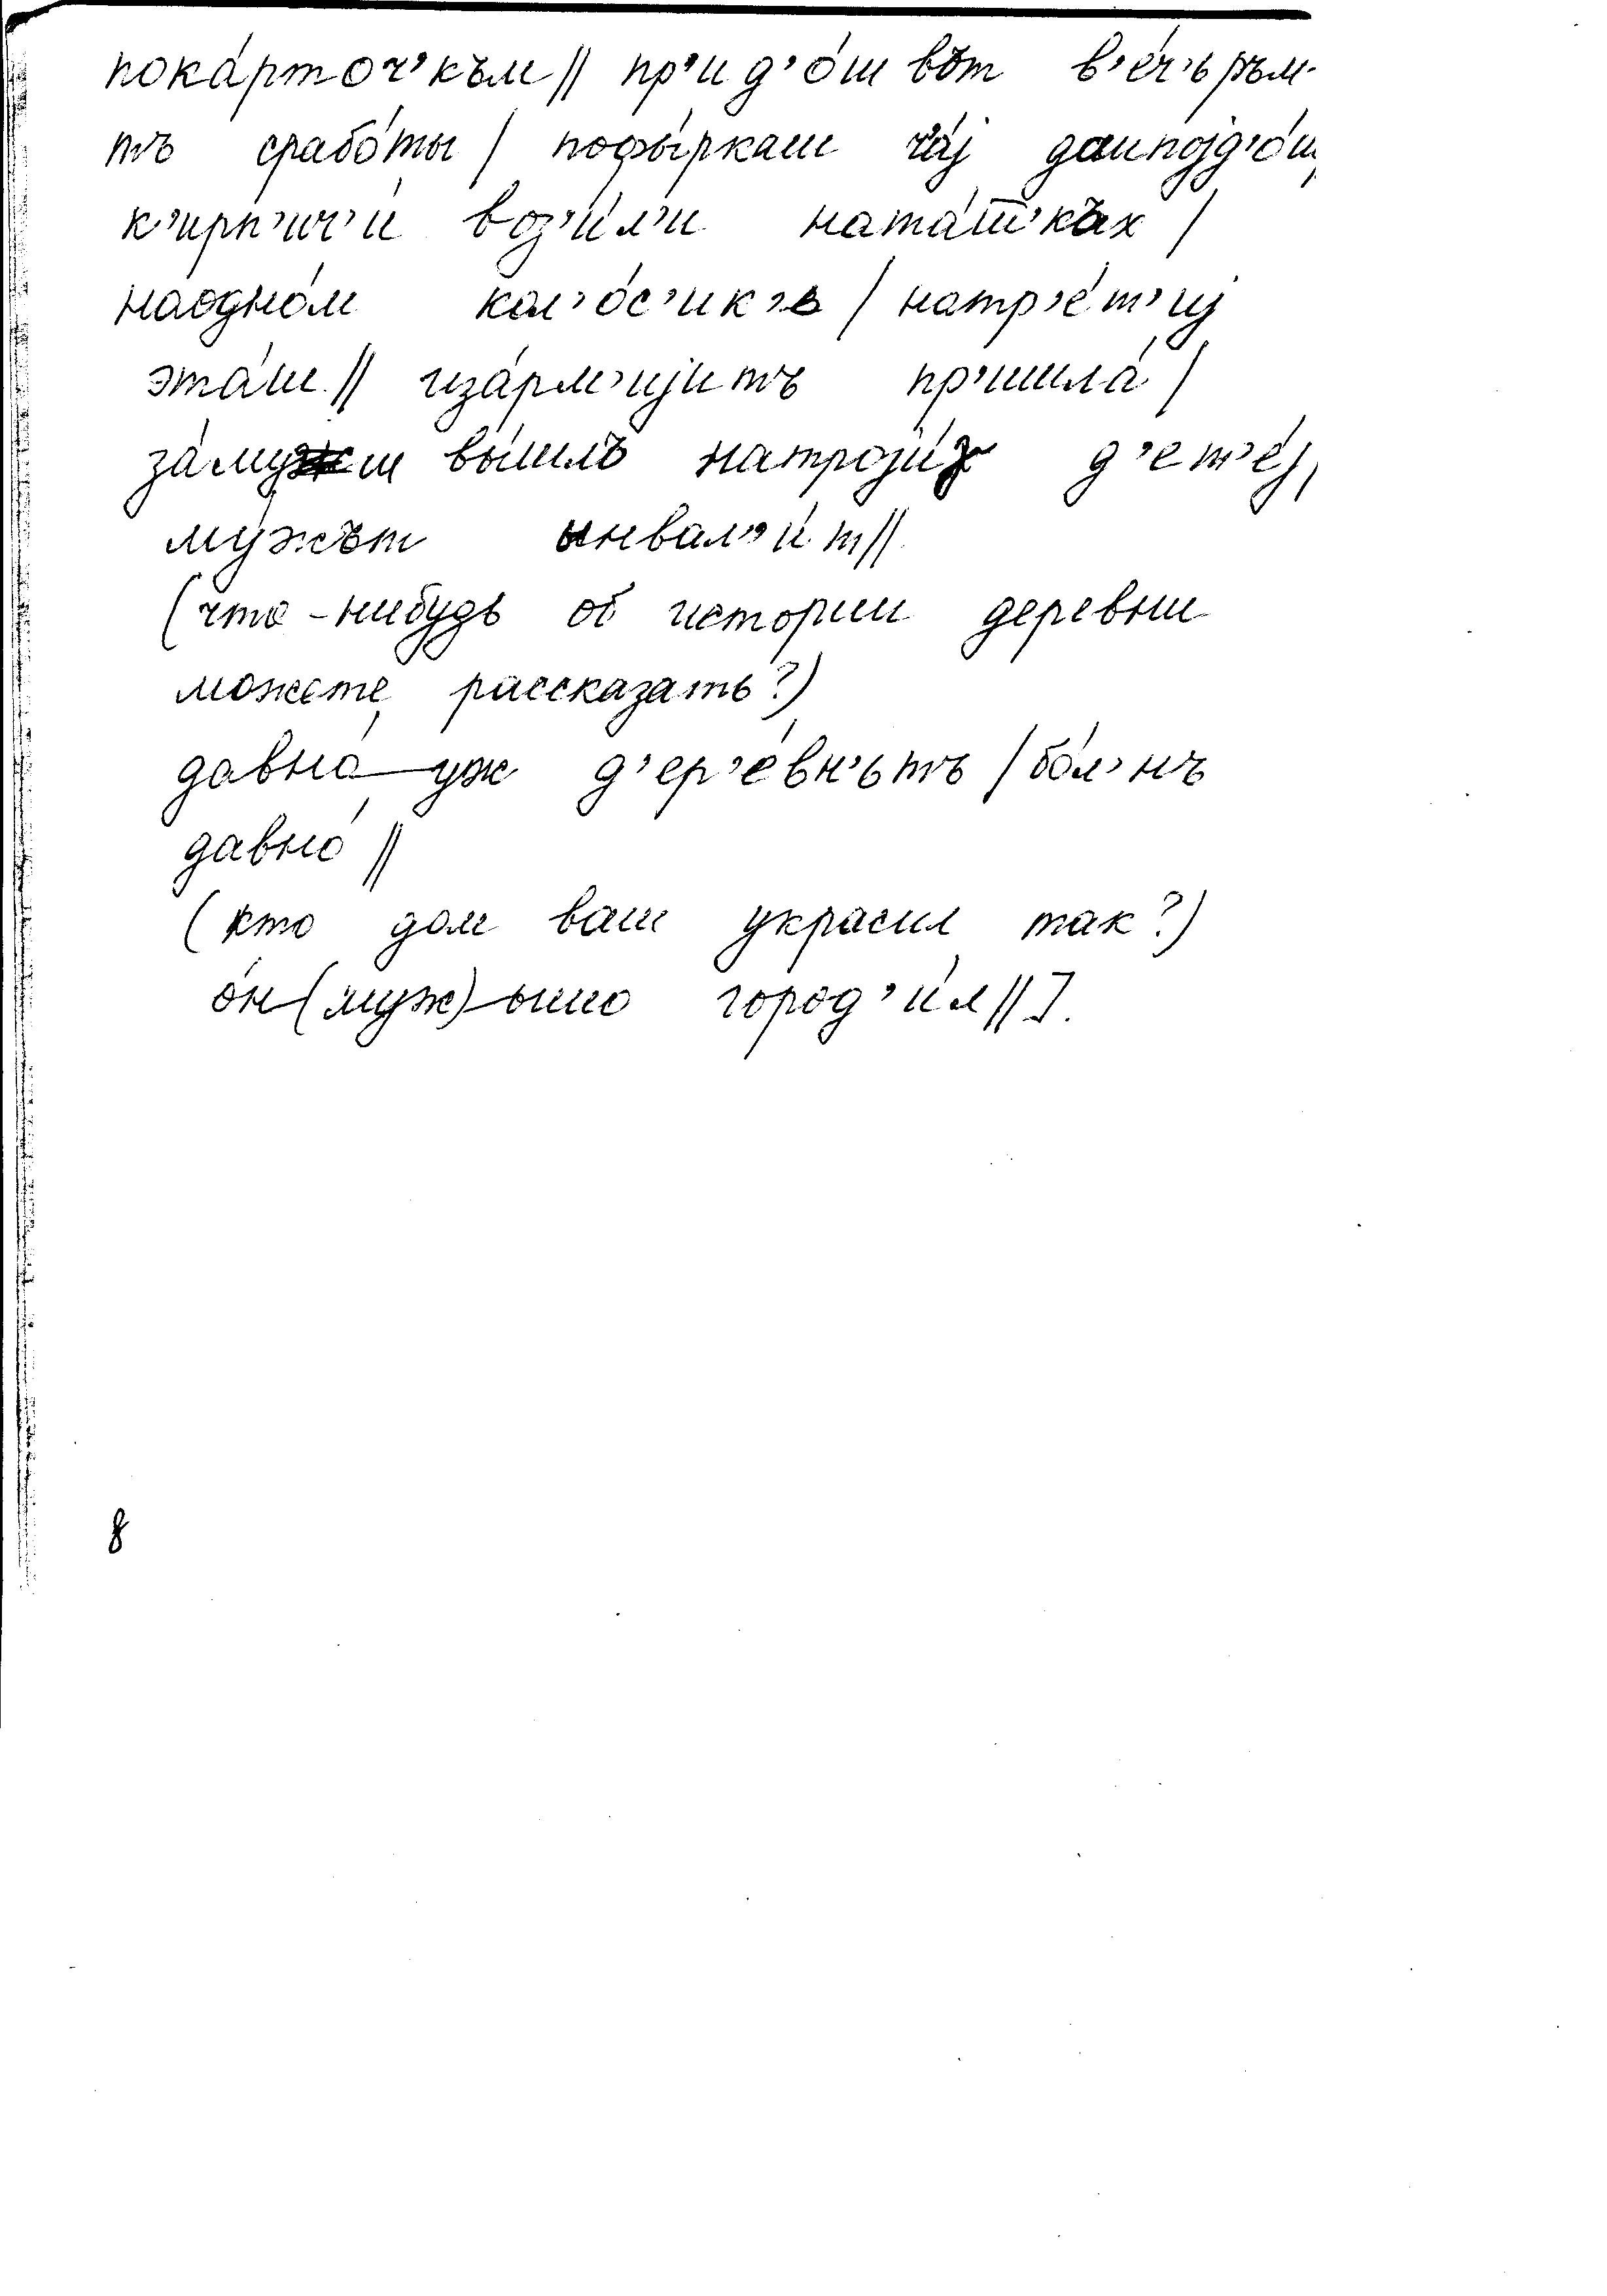 пока́рточ’към // пр’ид’о́ш во̂т в’е́ч’ьръм-
тъ срабо́ты / пофы́ркаш ч’а́ј даипојд’о́ш,
к’ирп’ич’и́ воз’и́л’и ната́ч’ках /
наодно́м кол’о́с’ик’ь / натр’е́т’иј
эта́ш // иза́рм’ијитъ пр’ишла́ /
за́муш вы́шлъ натроји́х д’ет’е́ј,
му́жът ынвал’и́т //
(что-нибудь об истории деревни
можете рассказать?)
давно́ уж д’ер’е́вн’ьтъ / бо́л’нъ
давно́ //
(кто дом ваш украсил так?)
о́н (муж) ошшо город’и́л // ].
8